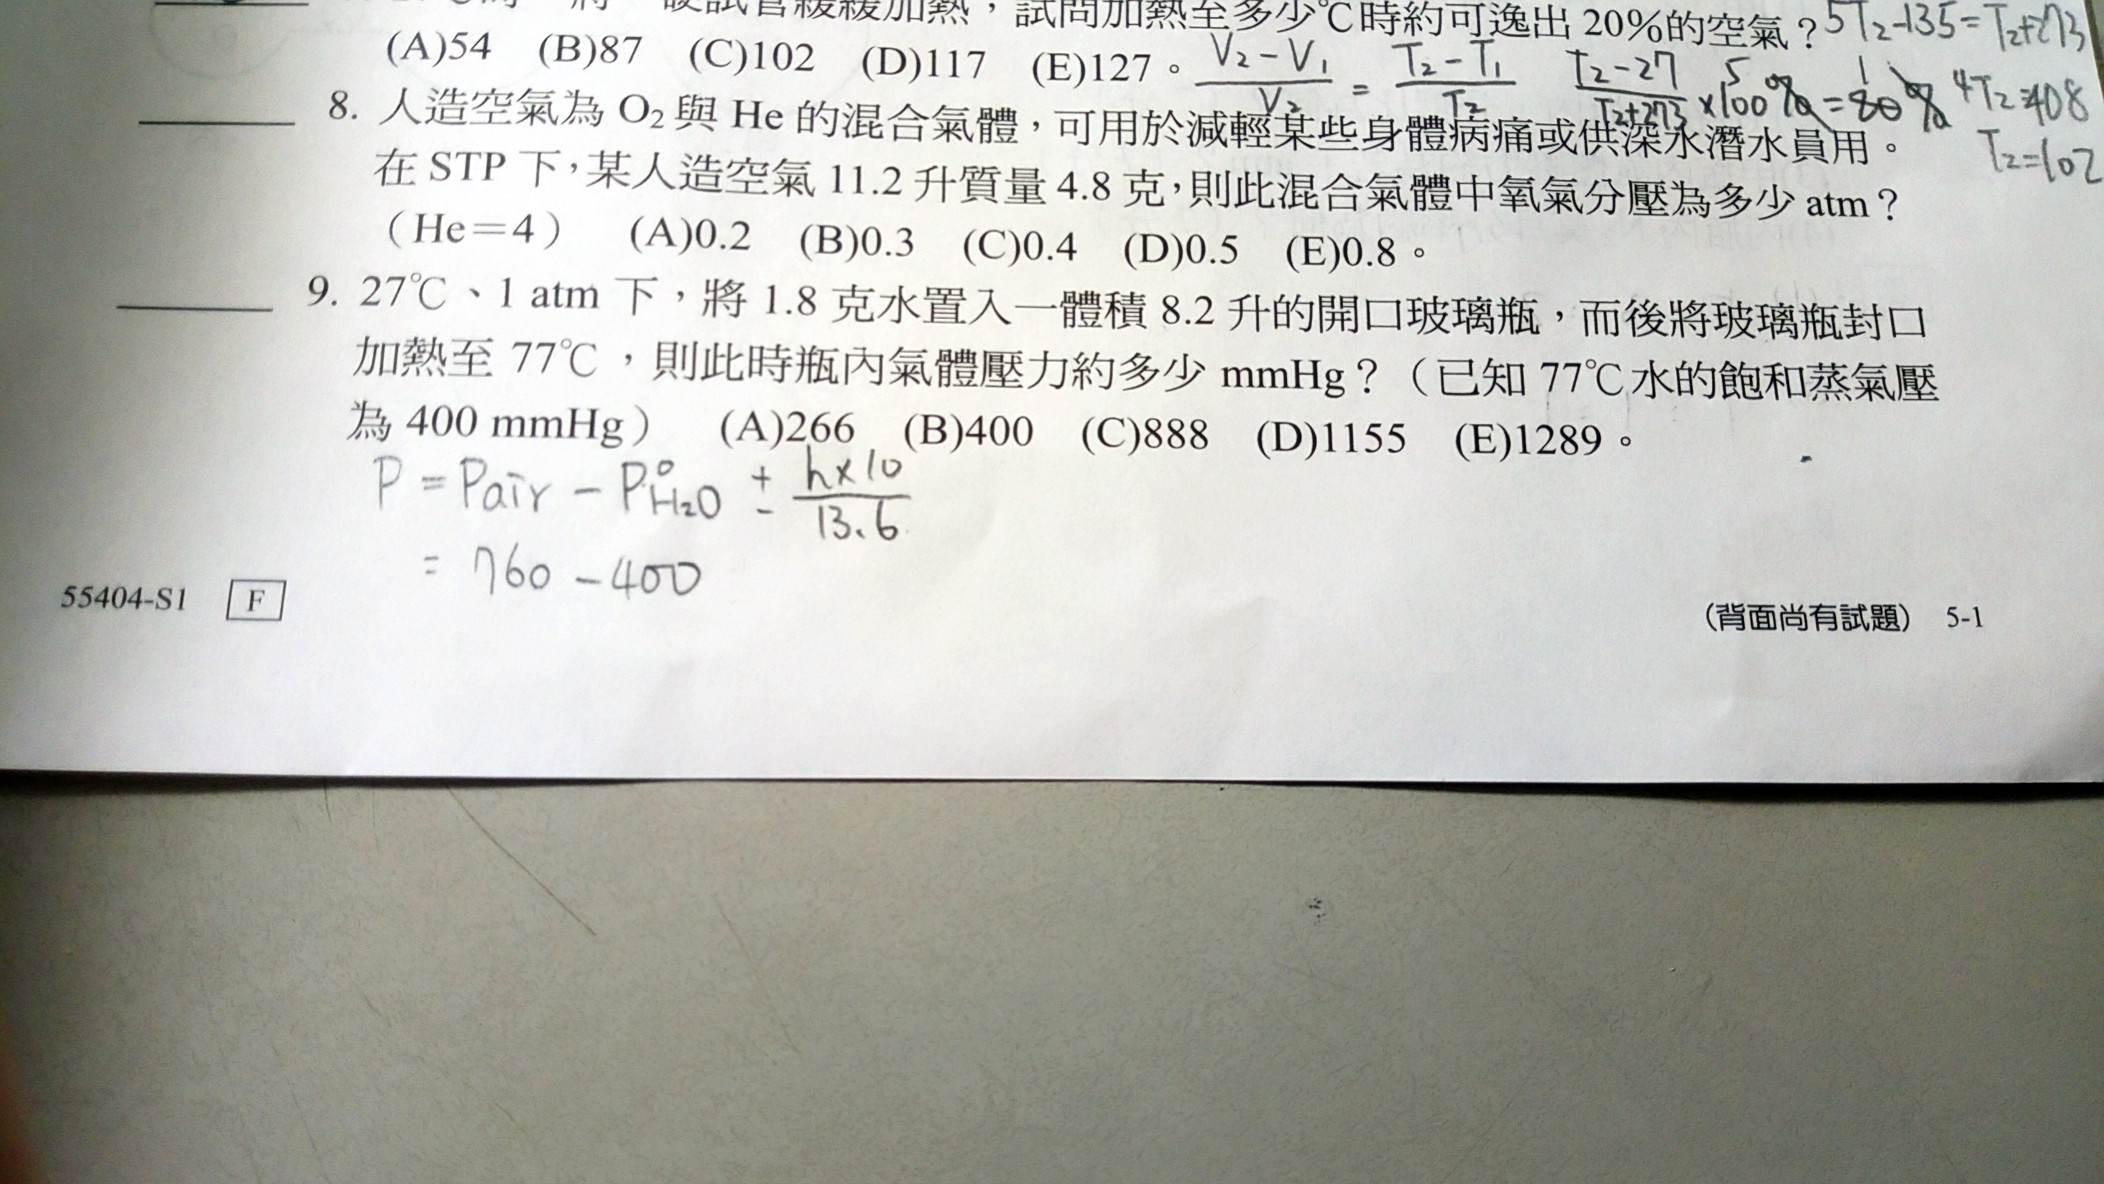 緩緩加熱，試問加熱至多少℃時約可逸出 20%的空氣？ 5T₂-135=T₂+273
(A)54 (B)87 (C)102 (D)117 (E)127。 V₂-V₁/V₂ = T₂-T₁/T₂ T₂-27/T₂+273 ×100% = 20% 4T₂=408
T₂=102
8. 人造空氣為 O₂與 He 的混合氣體，可用於減輕某些身體病痛或供深水潛水員用。
在 STP 下，某人造空氣 11.2 升質量 4.8 克，則此混合氣體中氧氣分壓為多少 atm？
（He＝4） (A)0.2 (B)0.3 (C)0.4 (D)0.5 (E)0.8。
9. 27℃、1 atm 下，將 1.8 克水置入一體積 8.2 升的開口玻璃瓶，而後將玻璃瓶封口
加熱至 77℃，則此時瓶內氣體壓力約多少 mmHg？（已知 77℃水的飽和蒸氣壓
為 400 mmHg） (A)266 (B)400 (C)888 (D)1155 (E)1289。
P = Pair - P°H₂O ± h×10/13.6
= 760 - 400
55404-S1 F
(背面尚有試題) 5-1